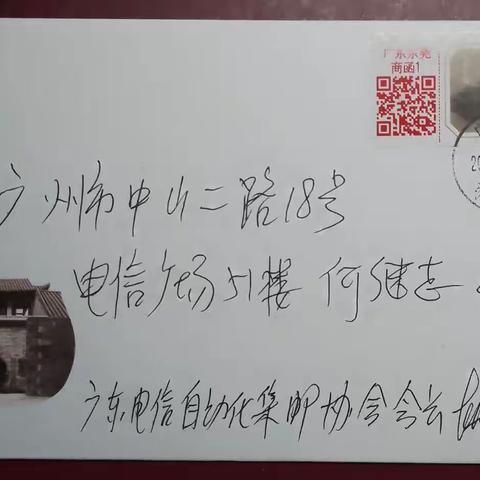 广东东莞
商函1
20
广州市中山二路18号
电信广场51楼 何继志
广东电信自动化集邮协会会长